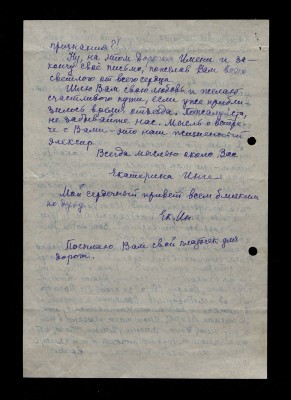 признания?!
Ну, на этом дорогом Имени и за-
кончу своё письмо, пожелав Вам всего
светлого от всего сердца.
Шлю Вам свою любовь и желаю
счастливого пути, если уже прибли-
зилось время отъезда. Пожалуйста,
не забывайте нас. Мысль о встре-
че с Вами - это наш жизненный
элексир.
Всегда мыслью около Вас
Екатерина Инге
Мой сердечный привет всем близким
по духу.
Ек. Ин.
Посылаю Вам свой платочек для
дороги.